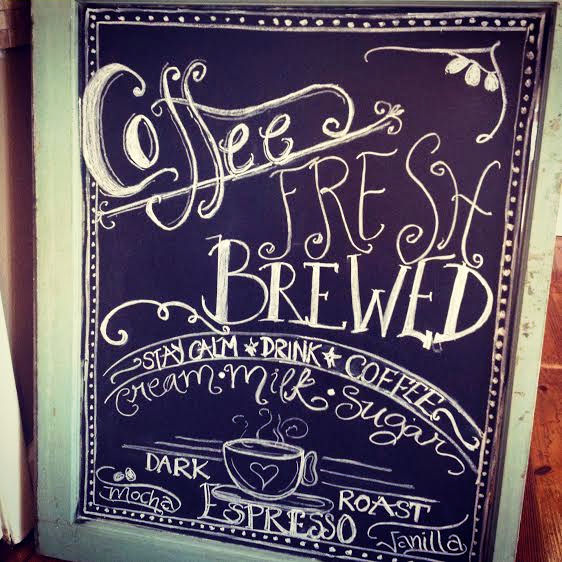 Coffee
FRESH
BREWED
STAY CALM * DRINK * COFFEE
Cream • Milk • Sugar
DARK ROAST
Mocha ESPRESSO Vanilla